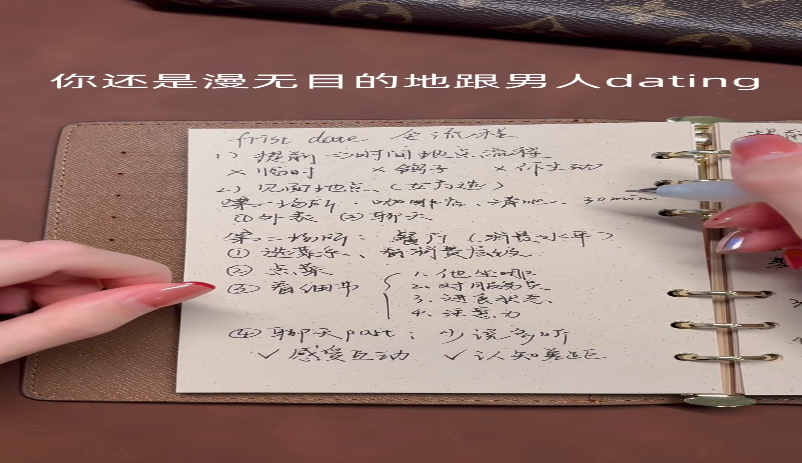 你还是漫无目的地跟男人dating
frist date 全流程
1.) 提前 时间地点流程
× 临时 × 鸽子 × 你主动
2.) 见面地点 (女方选)
第一场所: 咖啡店、清吧、30min
① 外表 ② 聊天
第二场所: 餐厅 (消费水平)
① 选菜系、看消费层级
② 点菜
③ 看细节
1. 他坐哪
2. 对服务员
3. 进食状态
4. 注意力
④ 聊天part: 少谈多听
✓ 感受互动 ✓ 认知差距